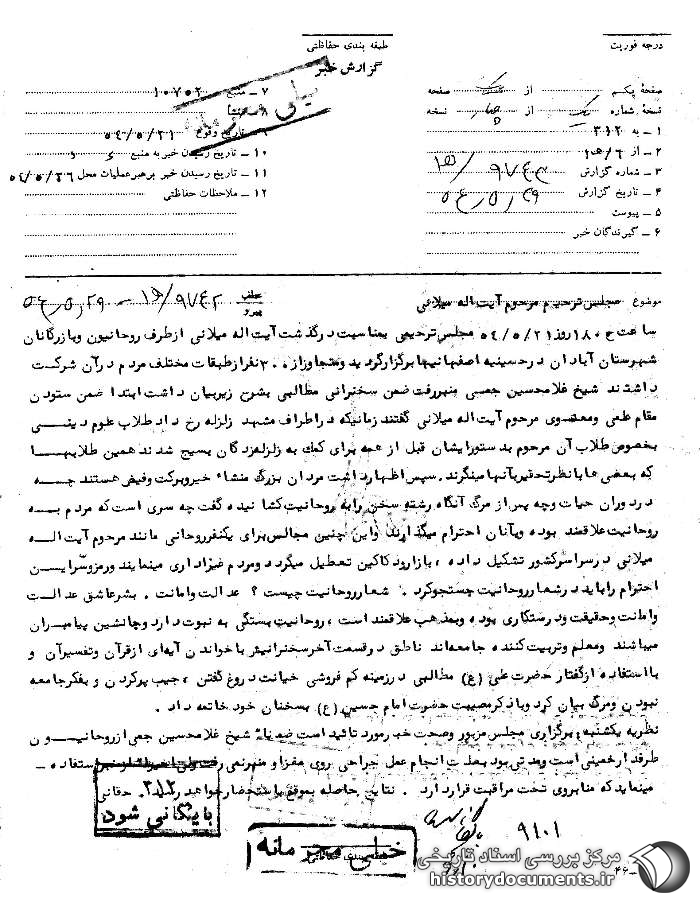 درجه فوریت
طبقه بندی حفاظتی
گزارش خبر
خیلی محرمانه
صفحهٔ یکم از یک صفحه
نسخهٔ شماره یک از چهار نسخه
۱ ـ به ۳۱۲
۲ ـ از ۶/ه۱
۳ ـ شماره گزارش ۹۷۴۲/ه۱
۴ ـ تاریخ گزارش ۵۴/۵/۲۹
۵ ـ پیوست
۶ ـ گیرندگان خبر
۷ ـ منبع ۱۰۷۵۲
۸ ـ منشأ
۹ ـ تاریخ وقوع ۵۴/۵/۲۱
۱۰ ـ تاریخ رسیدن خبر به منبع
۱۱ ـ تاریخ رسیدن خبر برهبر عملیات محل ۵۴/۵/۲۶
۱۲ ـ ملاحظات حفاظتی
موضوع مجلس ترحیم مرحوم آیت اله میلانی عطف پیرو ۹۷۴۲/ه۱ – ۵۴/۵/۲۹
ساعت ۱۸۰۰ روز ۵۴/۵/۲۱ مجلس ترحیمی بمناسبت درگذشت آیت اله میلانی از طرف روحانیون و بازرگانان
شهرستان آبادان در حسینیه اصفهانیها برگزار گردید و متجاوز از ۳۰۰ نفر از طبقات مختلف مردم در آن شرکت
داشتند شیخ غلامحسین جمی منبر رفت ضمن سخنرانی مطالبی بشرح زیر بیان داشت ابتدا ضمن ستودن
مقام علمی و معنوی مرحوم آیت اله میلانی گفتند زمانیکه در اطراف مشهد زلزله رخ داد طلاب علوم دینی
بخصوص طلاب آن مرحوم بدستور ایشان قبل از همه برای کمک به زلزله زدگان بسیج شدند همین طلابیها
که بعضی ها با نظر تحقیر بآنها مینگرند. سپس اظهار داشت مردان بزرگ منشاء خیر و برکت و فیض هستند چه
در دوران حیات و چه پس از مرگ آنگاه رشته سخن را به روحانیت کشانیده گفت چه سری است که مردم به
روحانیت علاقمند بوده و بآنان احترام میگذارند و این چنین مجالس برای یکنفر روحانی مانند مرحوم آیت اله
میلانی در سراسر کشور تشکیل داده، بازار و دکاکین تعطیل میگردد و مردم عزاداری مینمایند و رمز و سر این
احترام را باید در شعار روحانیت جستجو کرد. شعار روحانیت چیست؟ عدالت و امانت. بشر عاشق عدالت
و امانت و حقیقت و درستکاری بوده و بمذهب علاقمند است، روحانیت بستگی به نبوت دارد و جانشین پیامبران
میباشند و معلم و تربیت کننده جامعه اند ناطق در قسمت آخر سخنرانیش با خواندن آیه ای از قرآن و تفسیر آن و
با استفاده از گفتار حضرت علی (ع) مطالبی در زمینه کم فروشی خیانت دروغ گفتن، جیب پر کردن و بفکر جامعه
نبودن و مرگ بیان کرد و با ذکر مصیبت حضرت امام حسین (ع) بسخنان خود خاتمه داد.
نظریه یکشنبه: برگزاری مجلس مزبور و صحت خبر مورد تائید است ضمناً شیخ غلامحسین جمی از روحانیون
طرفدار خمینی است و مدتی بود بعلت انجام عمل جراحی روی مغز او منبر نمی رفت استفاده ـ
مینماید که منابر وی تحت مراقبت قرار دارد. نتایج حاصله بموقع باستحضار خواهد رسید. حقانی
۳۱۲
بایگانی شود
۹۱۰۱
خیلی محرمانه
مرکز بررسی اسناد تاریخی
historydocuments.ir